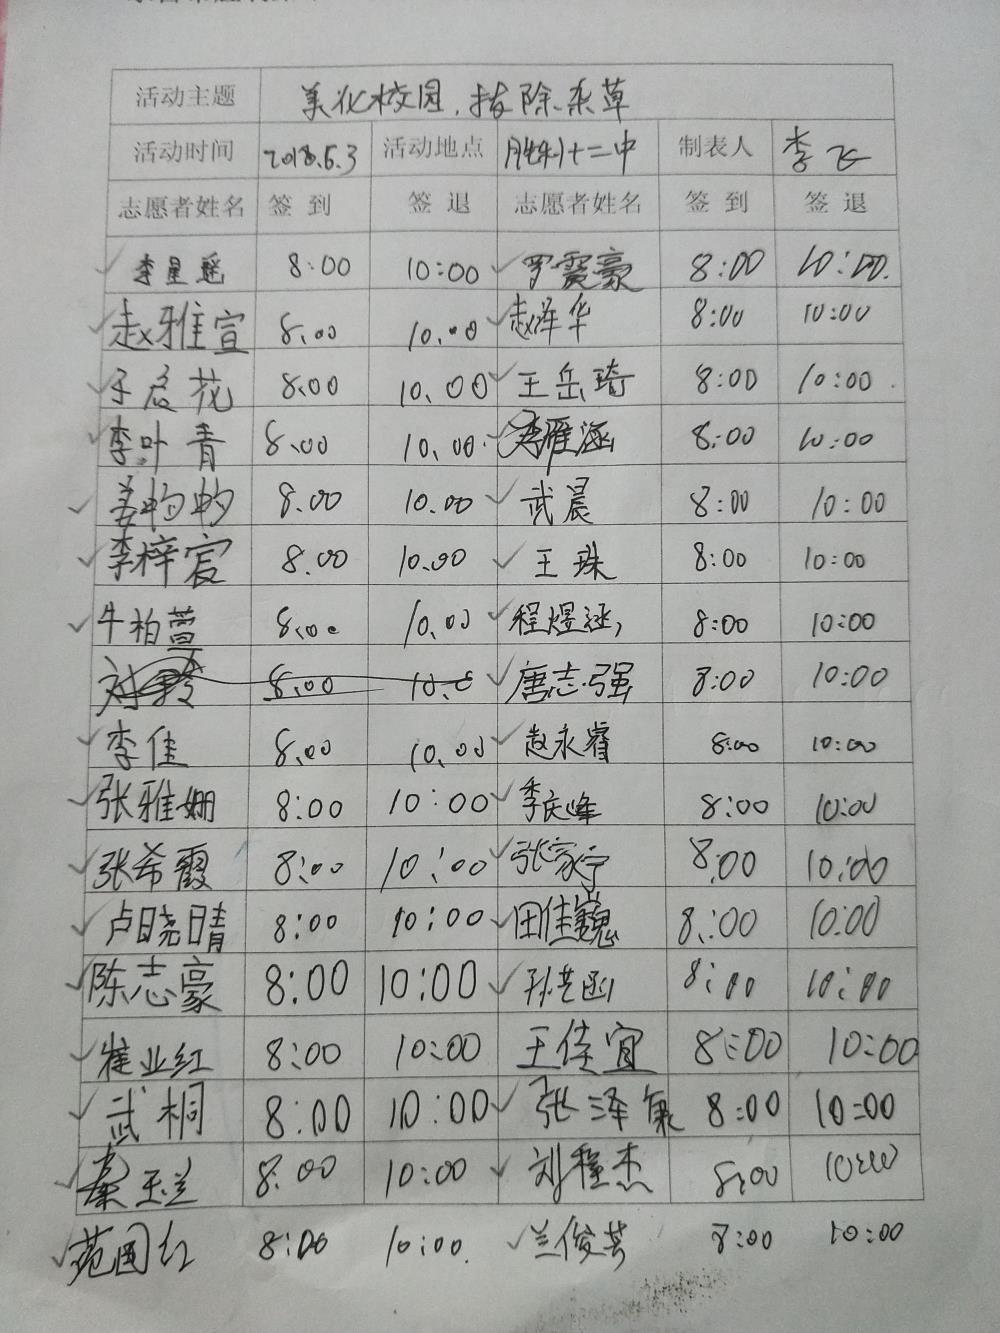 活动主题 美化校园.拔除杂草
活动时间 2018.6.3 活动地点 胜利十二中 制表人 李飞
志愿者姓名 签到 签退 志愿者姓名 签到 签退
李星遥 8:00 10:00 罗震豪 8:00 10:00.
赵雅宣 8.00 10.00 赵泽华 8:00 10:00
8.00 10.00 王岳琦 8:00 10:00
李叶青 8.00 10.00 李雁涵 8:00 10:00
姜昀昀 8.00 10.00 武晨 8:00 10:00
李梓宸 8.00 10.00 王珠 8:00 10:00
牛柏萱 8.00 10.00 程煜涵 8:00 10:00
8.00 10.0 唐志强 8:00 10:00
李佳 8.00 10.00 赵永睿 8:00 10:00
张雅姗 8:00 10:00 李庆峰 8:00 10:00
张希霞 8:00 10:00 张家宁 8:00 10:00
卢晓晴 8:00 10:00 田佳巍 8:00 10:00
陈志豪 8:00 10:00 孙艺函 8:00 10:00
崔业红 8:00 10:00 王佳宜 8:00 10:00
武桐 8:00 10:00 张泽 8:00 10:00
秦玉兰 8:00 10:00 刘程杰 8:00 10:00
苑国红 8:00 10:00. 兰俊芳 8:00 10:00